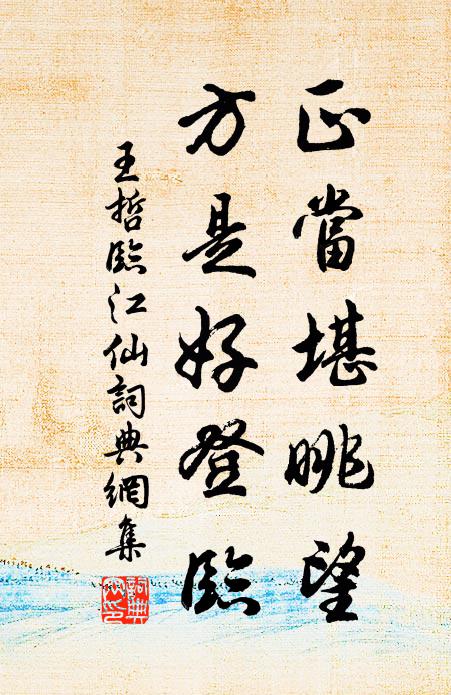 正當堪眺望
方是好登臨
王哲臨江仙詞典網集